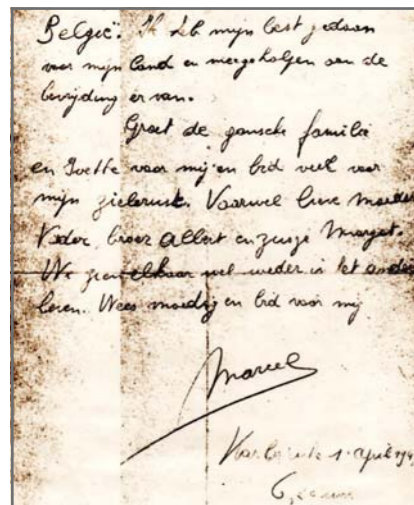 België". Ik heb mijn best gedaan
voor mijn land en meegeholpen aan de
bevrijding er van.
Groet de gansche familie
en Yvette voor mij en bid veel voor
mijn zielerust. Vaarwel lieve moeder
Vader, broer Albert en zusje Margot.
We zien elkaar wel weder in het ander
leven. Wees moedig en bid voor mij
Marcel
1 April 194